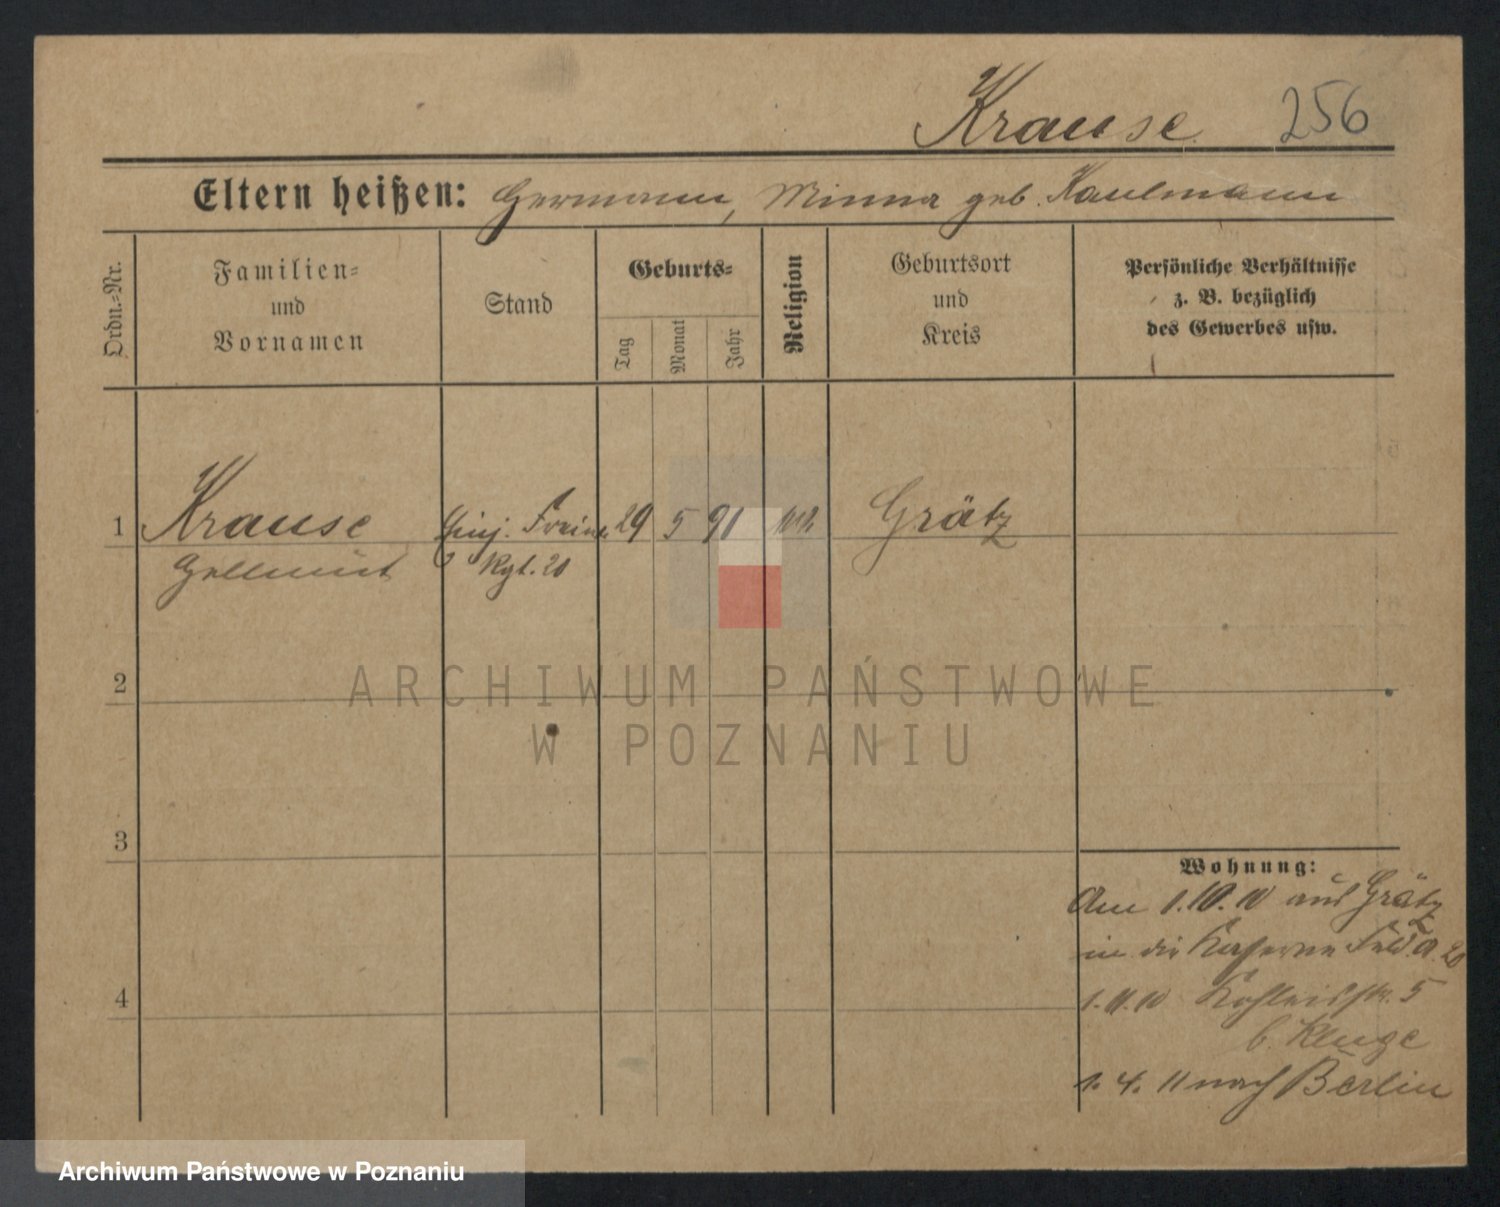 Krause 256
Eltern heißen: Hermann, Minna geb. Kaulmann
Ordn.=Nr.
Familien=
und
Vornamen
Stand
Geburts=
Tag
Monat
Jahr
Religion
Geburtsort
und
Kreis
Persönliche Verhältnisse
z. B. bezüglich
des Gewerbes usw.
1 Krause Einj. 29 5 91 Grätz
Hellmut 20
2
ARCHIWUM PAŃSTWOWE
W POZNANIU
3
Wohnung:
Am 1.10.10 aus Grätz
in die Kaserne Feld.a. 20
4
1.11.10 5
b. Kluge
1. 4. 11 nach Berlin
Archiwum Państwowe w Poznaniu